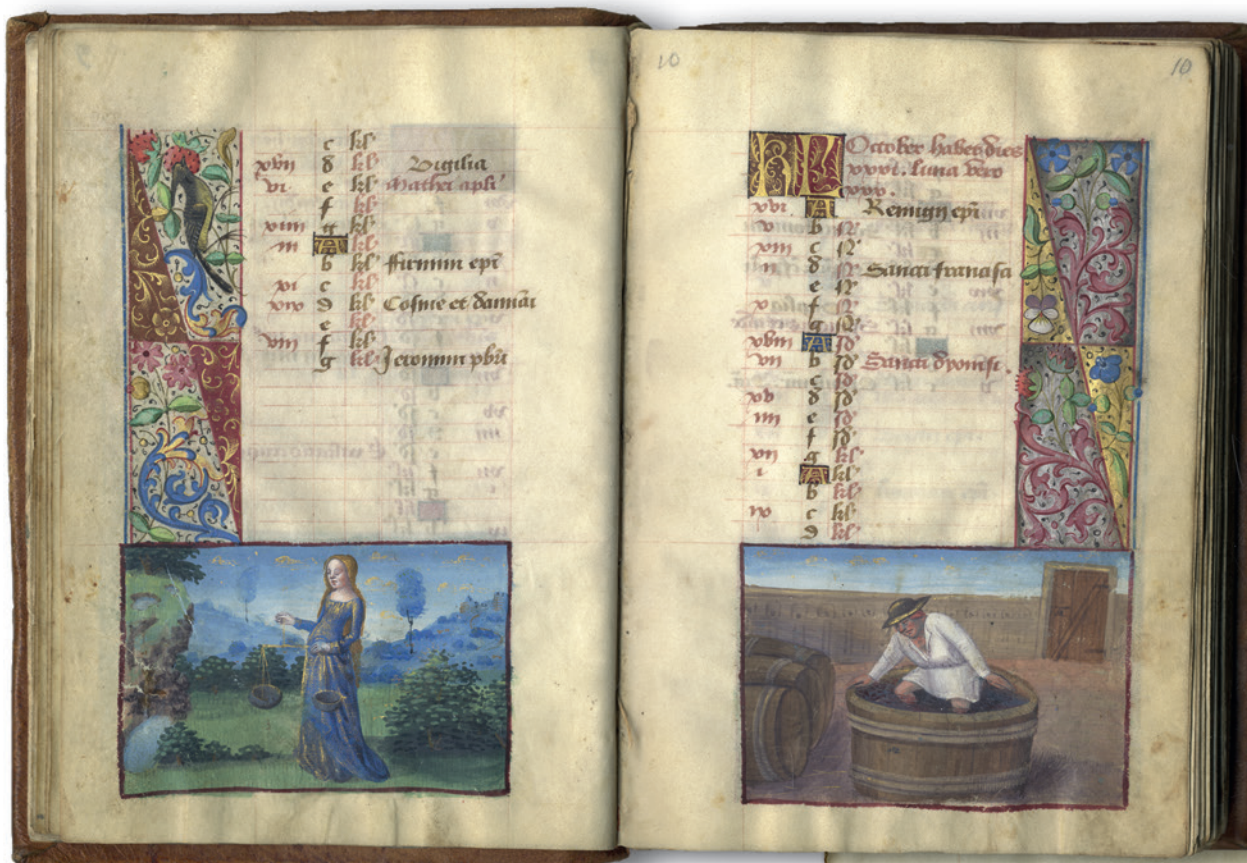 c kl'
xvii d kl' Vigilia
vi e kl' Mathei apli
f kl'
xiiii g kl'
iii A kl'
b kl' ffirmini epi
xi c kl'
xix d kl' Cosme et damiani
e kl'
viii f kl'
g kl' Jeronimi pbri
10
10
KL October habet dies
xxxi. luna vero
xxx.
xvi A Remigii epi
v b
xiii c
ii d Sancti francisci
e
x f
g
xviii A id'
vii b id' Sancti dyonisi.
c id'
xv d id'
iiii e id'
f id'
xii g kl'
i A kl'
b kl'
ix c kl'
d kl'